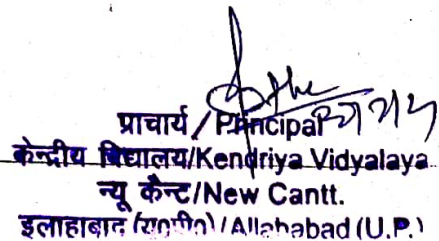 प्राचार्य / Principal
केन्द्रीय विद्यालय/Kendriya Vidyalaya
न्यू कैन्ट/New Cantt.
इलाहाबाद (उ०प्र०)/Allahabad (U.P.)